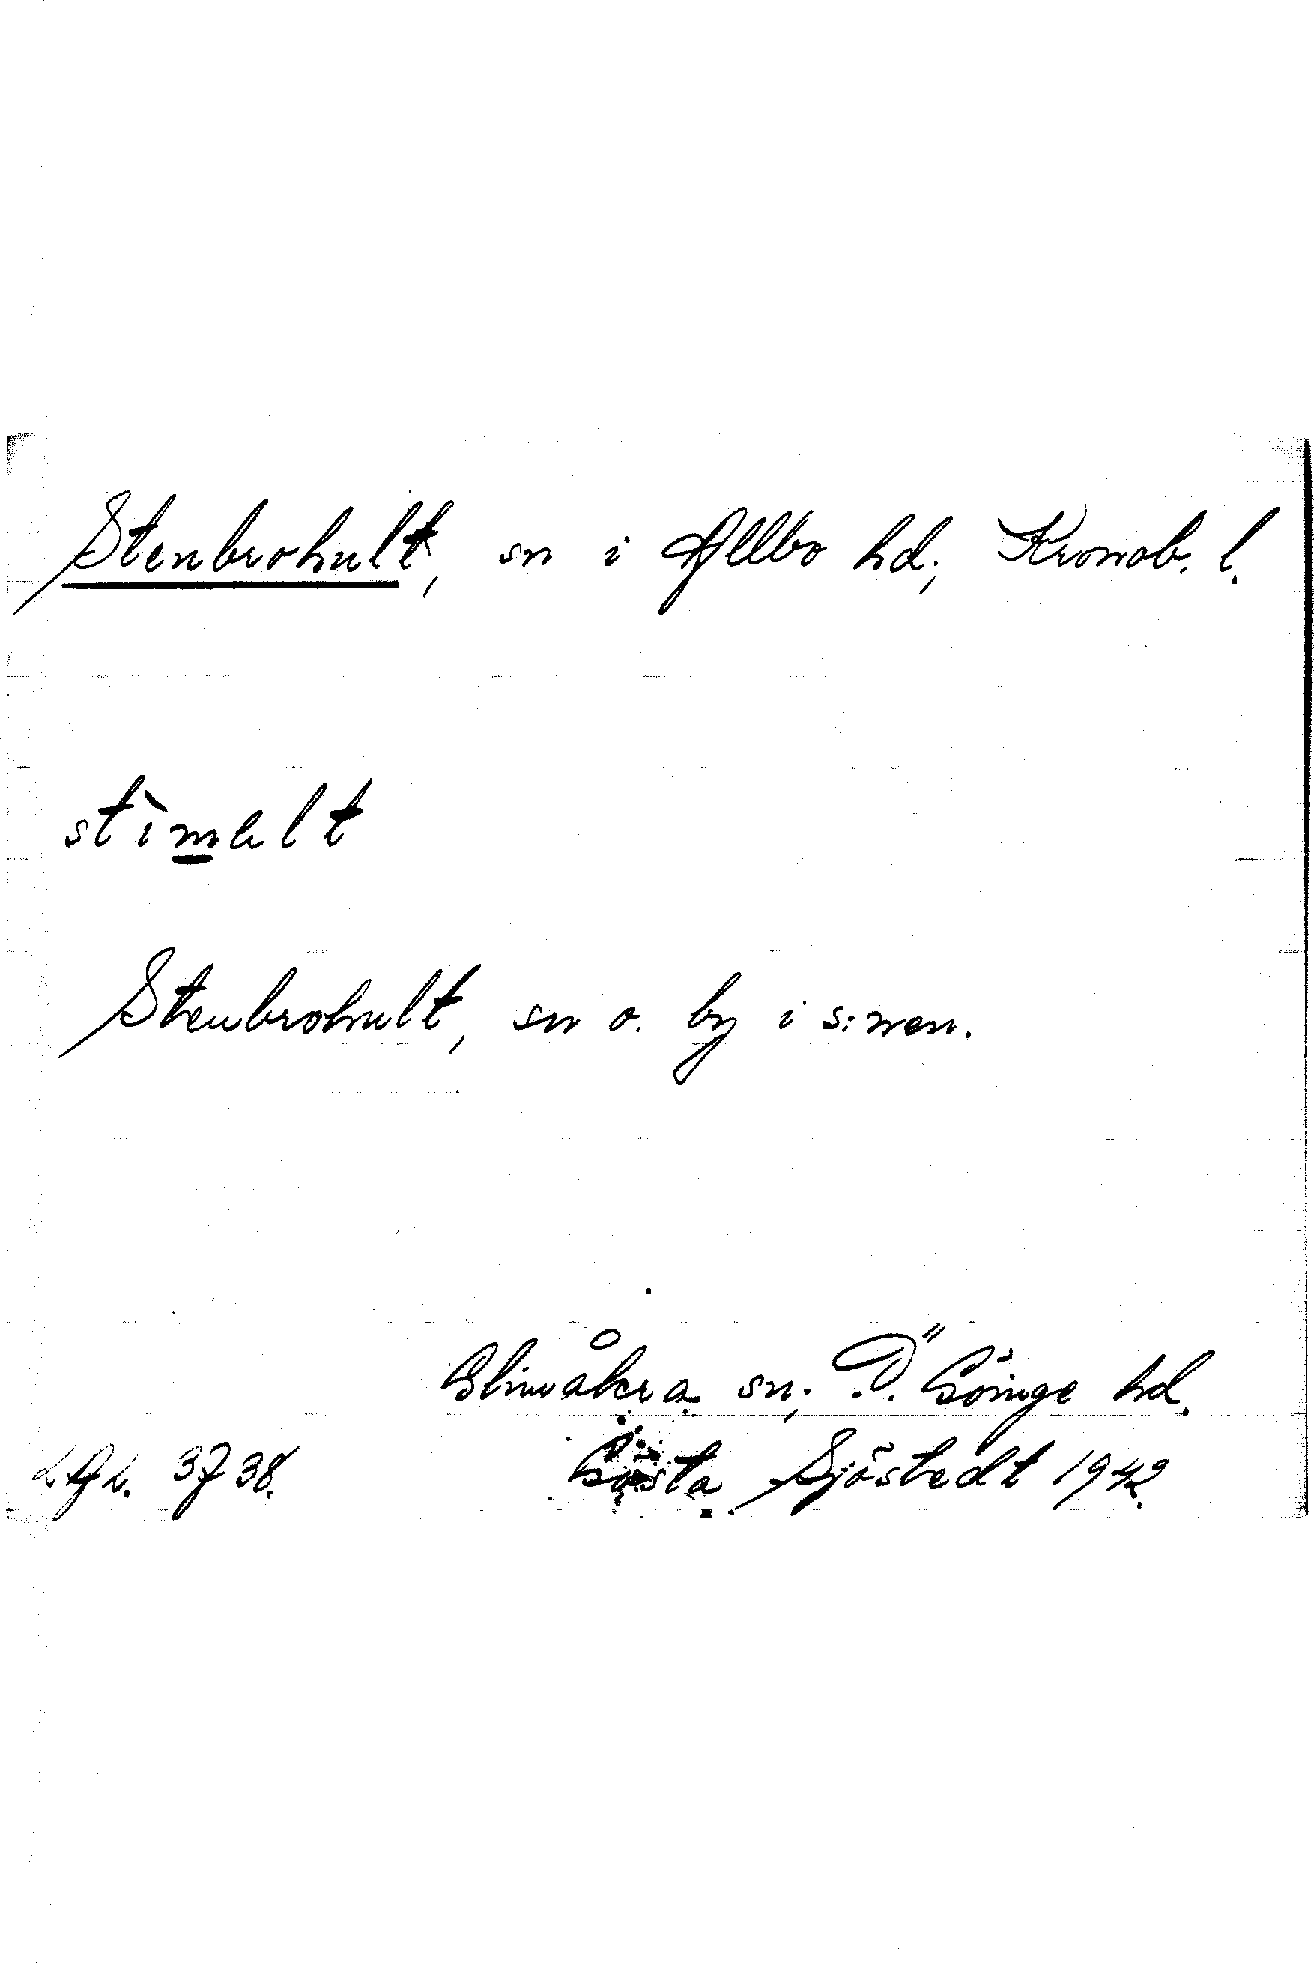 Stenbrohult, sn i Allbo hd, Kronob. l.
stìmelt
Stenbrohult, sn o. by i s:men.
Glimåkra sn, Ö. Göinge hd.
LAL. 3738. Gösta Sjöstedt 1942.